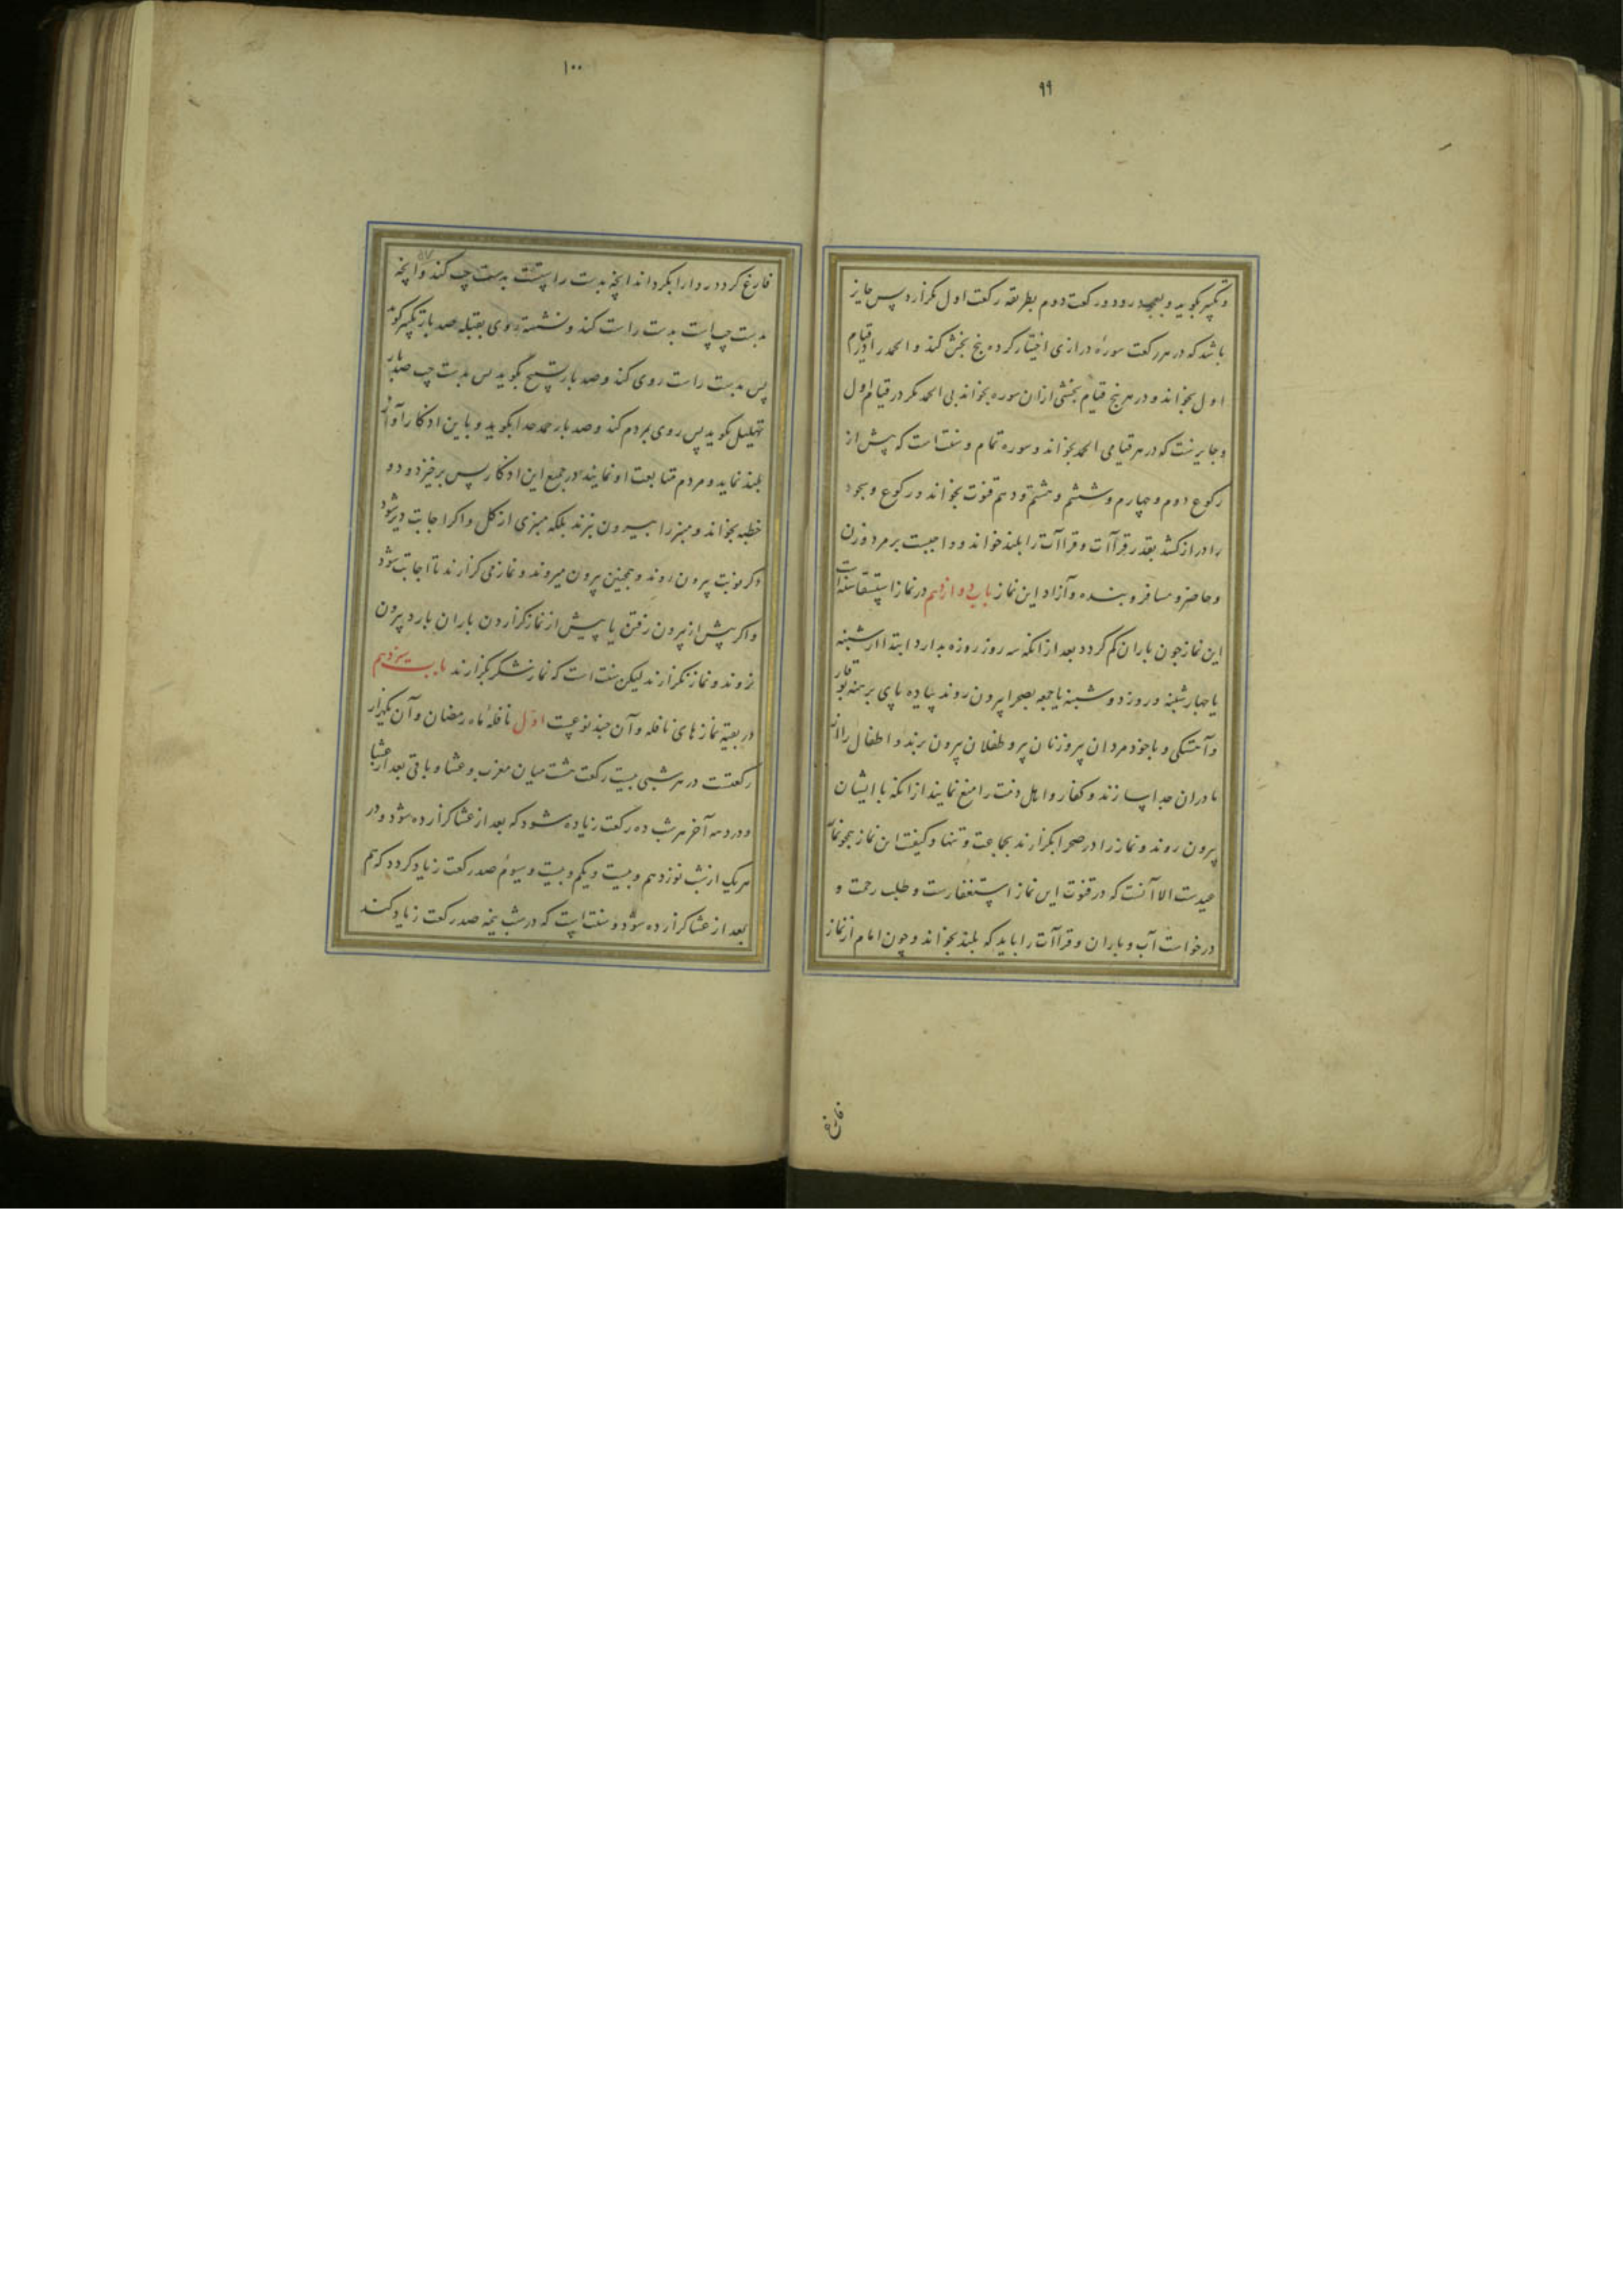 ۹۹
و تکبیر بگوید و بسجده رود و رکعت دوم بطریقه رکعت اول بگزارد پس جایز
باشد که در هر رکعت سورهٔ درازی اختیار کرده پنج بخش کند و الحمد را در قیام
اول بخواند و در هر پنج قیام بخشی ازان سوره بخواند بی الحمد مگر در قیام اول
و جایزست که در هر قیامی الحمد بخواند و سوره تمام و سنت است که پیش از
رکوع دوم و چهارم و ششم و هشتم و دهم قنوت بخواند و رکوع و سجود
را دراز کشد بقدر قراآت و قراآت را بلند خواند و واجبست بر مرد و زن
و حاضر و مسافر و بنده و آزاد این نماز باب دوازدهم در نماز استسقا سنة است
این نماز چون باران کم گردد بعد از انکه سه روز روزه بدارد ابتدا از شنبه
یا چهارشنبه و روز دوشنبه یا جمعه بصحرا بیرون روند پیاده پای برهنه بوقار
و آهستگی و با خود مردان پیر و زنان پیر و طفلان بیرون برند و اطفال را از
مادران جدا سازند و کفار و اهل ذمت را منع نمایند از انکه با ایشان
بیرون روند و نماز را در صحرا بگزارند بجماعت و تنها و کیفیت این نماز همچو نماز
عیدست الا آنست که در قنوت این نماز استغفارست و طلب رحمت و
درخواست آب و باران و قراآت را باید که بلند بخواند و چون امام از نماز
فارغ
۱۰۰
فارغ گردد ردا را بگرداند انچه بدست راستست بدست چپ کند و انچه
بدست چپ است بدست راست کند و نشسته روی بقبله صد بار تکبیر گوید
پس بدست راست روی کند و صد بار تسبیح بگوید پس بدست چپ صد بار
تهلیل بگوید پس روی بمردم کند و صد بار حمد خدا بگوید و باین اذکار آواز
بلند نماید و مردم متابعت او نمایند در جمیع این اذکار پس برخیزد و دو
خطبه بخواند و منبر را بیرون نبرند بلکه منبری از گل و اگر اجابت دیر شود
دگر نوبت بیرون روند و همچنین بیرون میروند و نماز می گزارند تا اجابت شود
و اگر پیش از بیرون رفتن یا پیش از نماز گزاردن باران بارد بیرون
نروند و نماز نگزارند لیکن سنت است که نماز شکر بگزارند باب سیزدهم
در بقیه نماز های نافله و آن چند نوعست اول نافلهٔ ماه رمضان و آن یکهزار
رکعتست در هر شبی بیست رکعت هشت میان مغرب و عشا و باقی بعد از عشا
و در دهه آخر هر شب ده رکعت زیاده شود که بعد از عشا گزارده شود و در
هر یک از شب نوزدهم و بیست و یکم و بیست و سیوم صد رکعت زیاد گردد که هم
بعد از عشا گزارده شود و سنت است که در شب نیمه صد رکعت زیاد کند